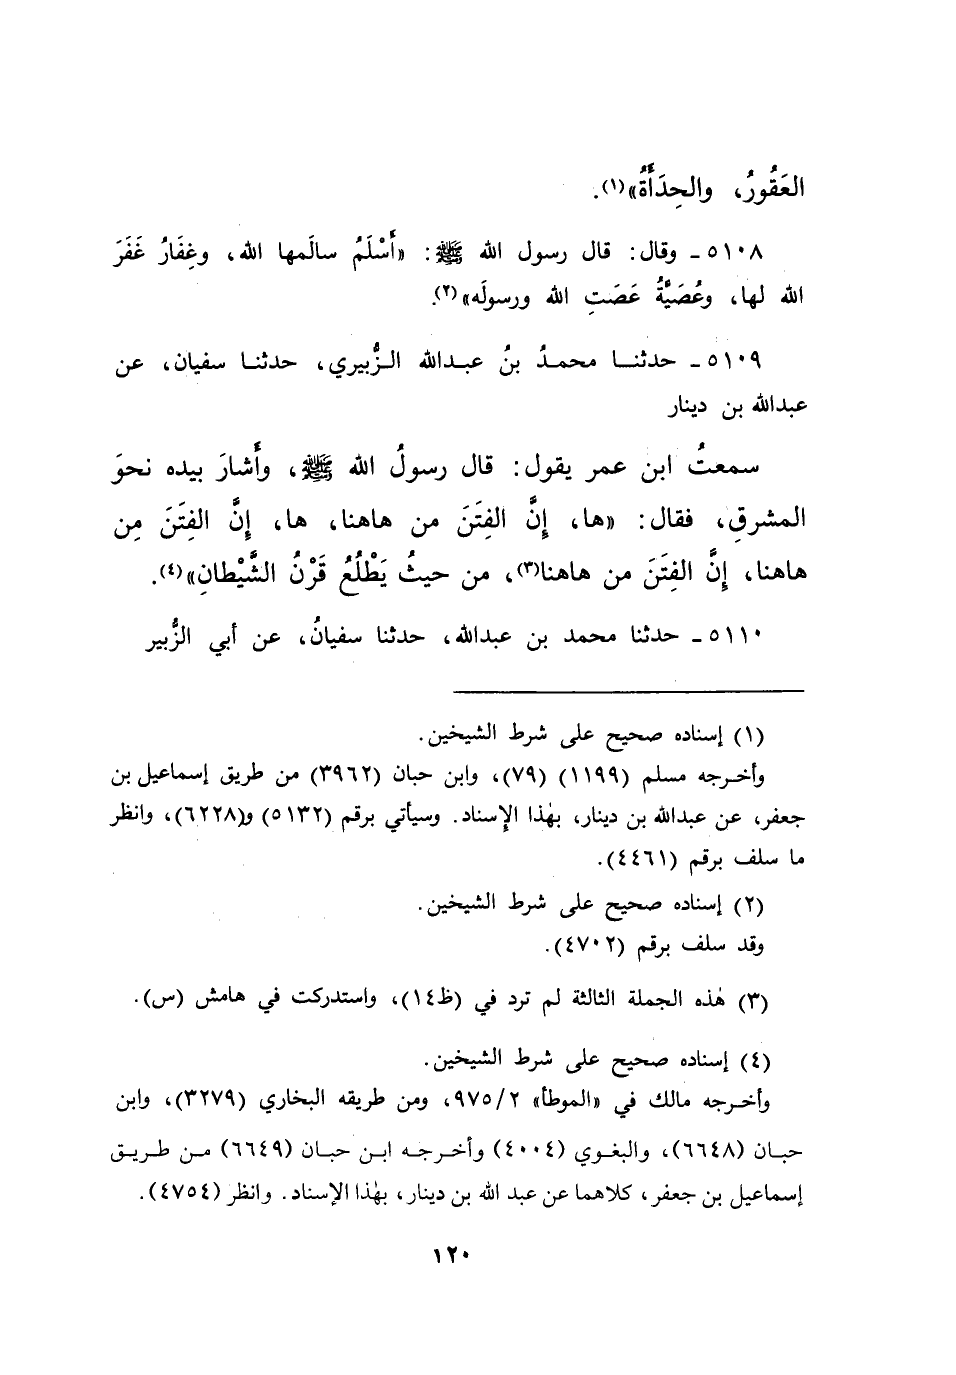 العَقُورُ، والحِدَأَةُ»(١).
٥١٠٨ ـ وقال: قال رسول الله ﷺ: «أَسْلَمُ سالَمها الله، وغِفَارُ غَفَرَ
الله لها، وعُصَيَّةُ عَصَتِ الله ورسولَه»(٢).
٥١٠٩ ـ حدثنا محمدُ بنُ عبدالله الزُّبيري، حدثنا سفيان، عن
عبدالله بن دينار
سمعتُ ابن عمر يقول: قال رسولُ الله ﷺ، وأَشارَ بيده نحوَ
المشرقِ، فقال: «ها، إِنَّ الفِتَنَ من هاهنا، ها، إِنَّ الفِتَنَ مِن
هاهنا، إِنَّ الفِتَنَ من هاهنا(٣)، من حيثُ يَطْلُعُ قَرْنُ الشَّيْطانِ»(٤).
٥١١٠ ـ حدثنا محمد بن عبدالله، حدثنا سفيانُ، عن أبي الزُّبير
(١) إسناده صحيح على شرط الشيخين.
وأخرجه مسلم (١١٩٩) (٧٩)، وابن حبان (٣٩٦٢) من طريق إسماعيل بن
جعفر، عن عبدالله بن دينار، بهٰذا الإِسناد. وسيأتي برقم (٥١٣٢) و(٦٢٢٨)، وانظر
ما سلف برقم (٤٤٦١).
(٢) إسناده صحيح على شرط الشيخين.
وقد سلف برقم (٤٧٠٢).
(٣) هٰذه الجملة الثالثة لم ترد في (ظ١٤)، واستدركت في هامش (س).
(٤) إسناده صحيح على شرط الشيخين.
وأخرجه مالك في «الموطأ» ٩٧٥/٢، ومن طريقه البخاري (٣٢٧٩)، وابن
حبان (٦٦٤٨)، والبغوي (٤٠٠٤) وأخرجه ابن حبان (٦٦٤٩) من طريق
إسماعيل بن جعفر، كلاهما عن عبد الله بن دينار، بهٰذا الإسناد. وانظر (٤٧٥٤).
١٢٠